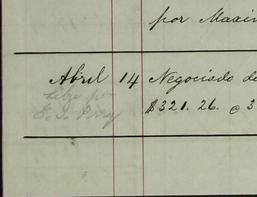 por Maxim
Abril 14 Negociado de
$321.26. @ 3